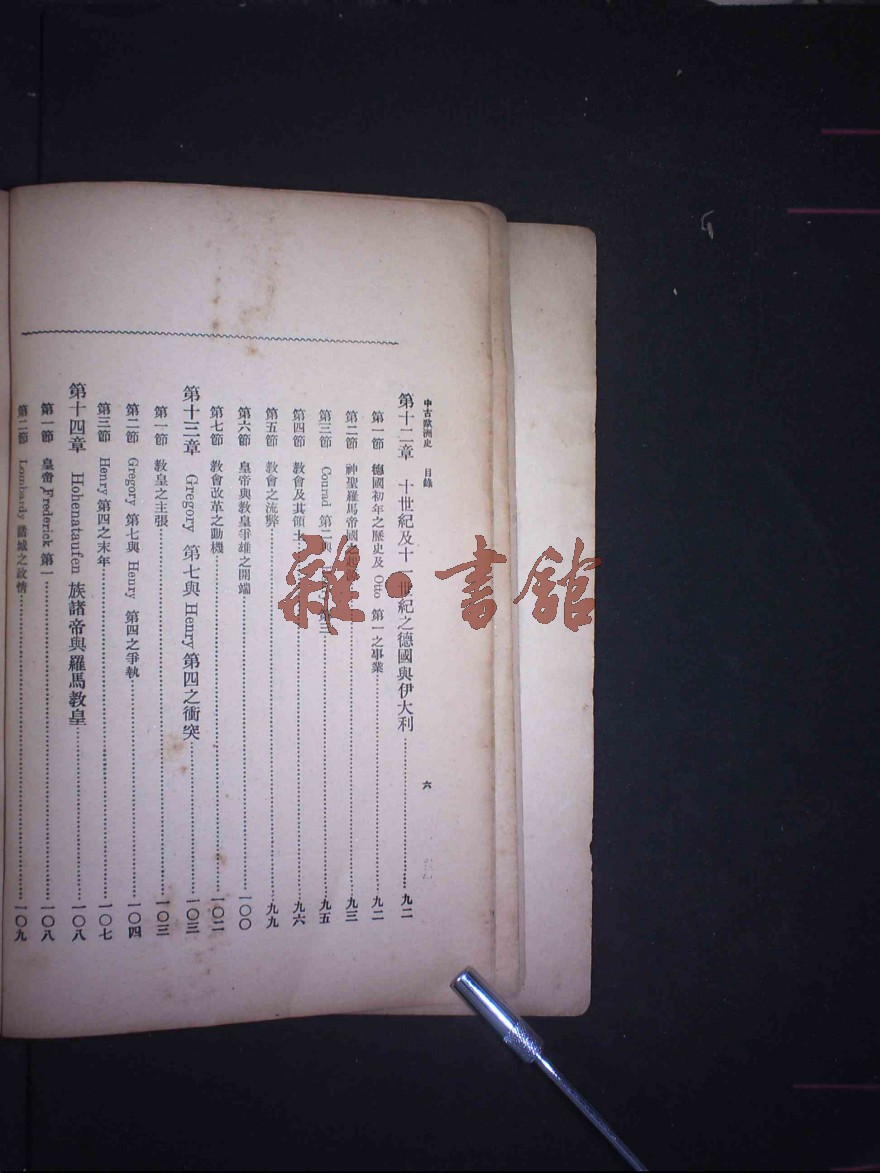 中古歐洲史 目錄 六
第十二章 十世紀及十一世紀之德國與伊大利 九二
第一節 德國初年之歷史及 Otto 第一之事業 九二
第二節 神聖羅馬帝國之 九三
第三節 Conrad 第二與 第三 九五
第四節 教會及其領土 九六
第五節 教會之流弊 九九
第六節 皇帝與教皇爭雄之開端 一〇〇
第七節 教會改革之動機 一〇二
第十三章 Gregory 第七與 Henry 第四之衝突 一〇三
第一節 教皇之主張 一〇三
第二節 Gregory 第七與 Henry 第四之爭執 一〇四
第三節 Henry 第四之末年 一〇七
第十四章 Hohenataufen 族諸帝與羅馬教皇 一〇八
第一節 皇帝 Frederick 第一 一〇八
第二節 Lombardy 諸城之政情 一〇九
雜·書館